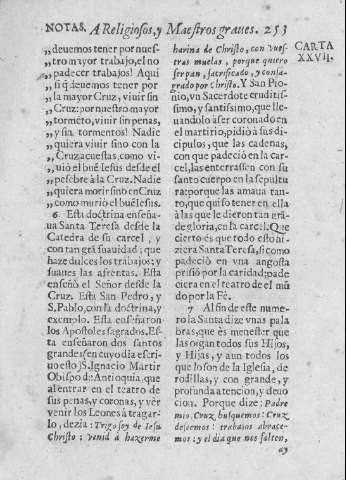 NOTAS. A Religiosos, y Maestros graues. 253
CARTA
XXVII.
„deuemos tener por nues-
„tro mayor trabajo, el no
„padecer trabajos! Aqui
„si q̃ deuemos tener por
„la mayor Cruz, viuir sin
„Cruz: por nuestro mayor
„tormẽto, viuir sin penas,
„y sin tormentos! Nadie
„quiera viuir sino con la
„Cruz acuestas, como vi-
„uiò el buẽ Iesus desde el
„pesebre à la Cruz. Nadie
„quiera morir sino en Cruz
„como murio el buẽ Iesus.
6 Esta doctrina enseña-
ua Santa Teresa desde la
Catedra de su carcel, y
con tan grã suauidad; que
haze dulces los trabajos; y
suaues las afrentas. Esta
enseñò el Señor desde la
Cruz. Esta San Pedro, y
S. Pablo, con la doctrina, y
exemplo. Esta enseñaron
los Apostoles sagrados. Es-
ta enseñaron dos santos
grandes en cuyo dia escri-
uo esto; S. Ignacio Martir
Obispo de Antioquia, que
al entrar en el teatro de
sus penas, y coronas, y vèr
venir los Leones à tragar-
lo, dezia: Trigo soy de Iesu
Christo; venid à hazerme
harina de Christo, con vues-
tras muelas, porque quiero
ser pan, sacrificado, y consa-
grado por Christo. Y San Pio-
nio, vn Sacerdote eruditis-
simo, y santissimo, que lle-
uandolo à ser coronado en
el martirio, pidiò à sus di-
cipulos, que las cadenas,
con que padeciò en la car-
cel, las enterrassen con su
santo cuerpo en la sepultu-
ra: porque las amaua tan-
to, que quiso tener en ella
à las que le dieron tan grã
de gloria, en la carcel. Que
cierto es que todo esto hi-
ziera Santa Teresa, si como
padeciò en vna angosta
prisiõ por la caridad; pade
ciera en el teatro de el mũ
do por la Fè.
7 Al fin de este nume-
ro la Santa dize vnas pala
bras, que es menester que
las oigan todos sus Hijos,
y Hijas, y aun todos los
que lo son de la Iglesia, de
rodillas, y con grande, y
profunda atencion, y deuo
cion. Porque dize: Padre
mio, Cruz busquemos: Cruz
deseemos: trabajos abrace-
mos: y el dia que nos falten,
ay